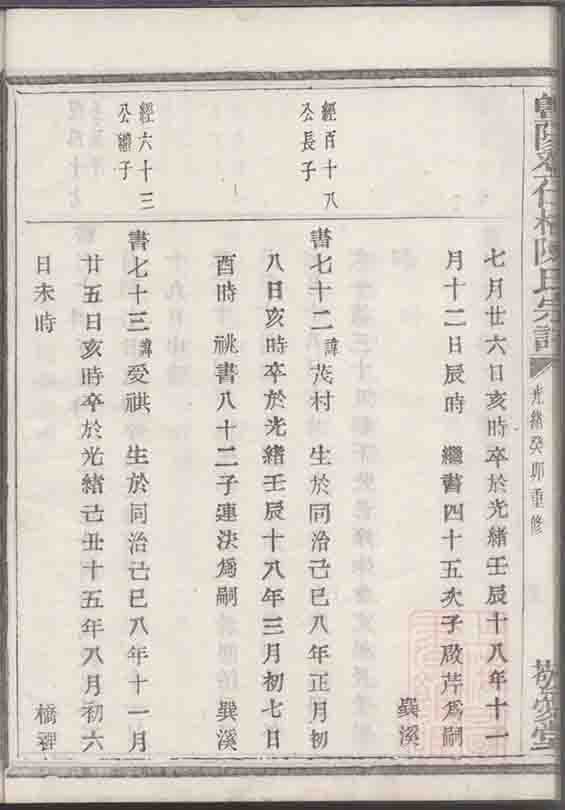 陳氏宗譜
光緒癸卯重修
敬愛堂
七月廿六日亥時卒於光緒壬辰十八年十一
月十二日辰時 繼書四十五次子啟芹爲嗣
巽溪
經百十八
公長子
書七十二諱茂村 生於同治己巳八年正月初
八日亥時卒於光緒壬辰十八年三月初七日
酉時 祧書八十二子連決爲嗣 巽溪
經六十三
公繼子
書七十三諱愛祺 生於同治己巳八年十一月
廿五日亥時卒於光緒己丑十五年八月初六
日未時 橋